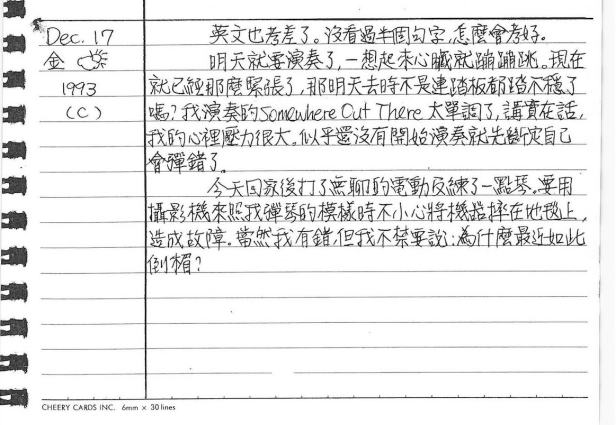 Dec. 17
金
1993
(C)
英文也考差了。沒看過半個句字,怎麼會考好。
明天就要演奏了,一想起來心臟就蹦蹦跳。現在
就已經那麼緊張了,那明天去時不是連踏板都踏不穩了
嗎?我演奏的Somewhere Out There 太單調了,講實在話,
我的心裡壓力很大。似乎還沒有開始演奏就先斷定自己
會彈錯了。
今天回家後打了無聊的電動及練了一點琴。要用
攝影機來照我彈琴的模樣時不小心將機器摔在地毯上,
造成故障。當然我有錯,但我不禁要說:為什麼最近如此
倒楣?
CHEERY CARDS INC. 6mm × 30 lines